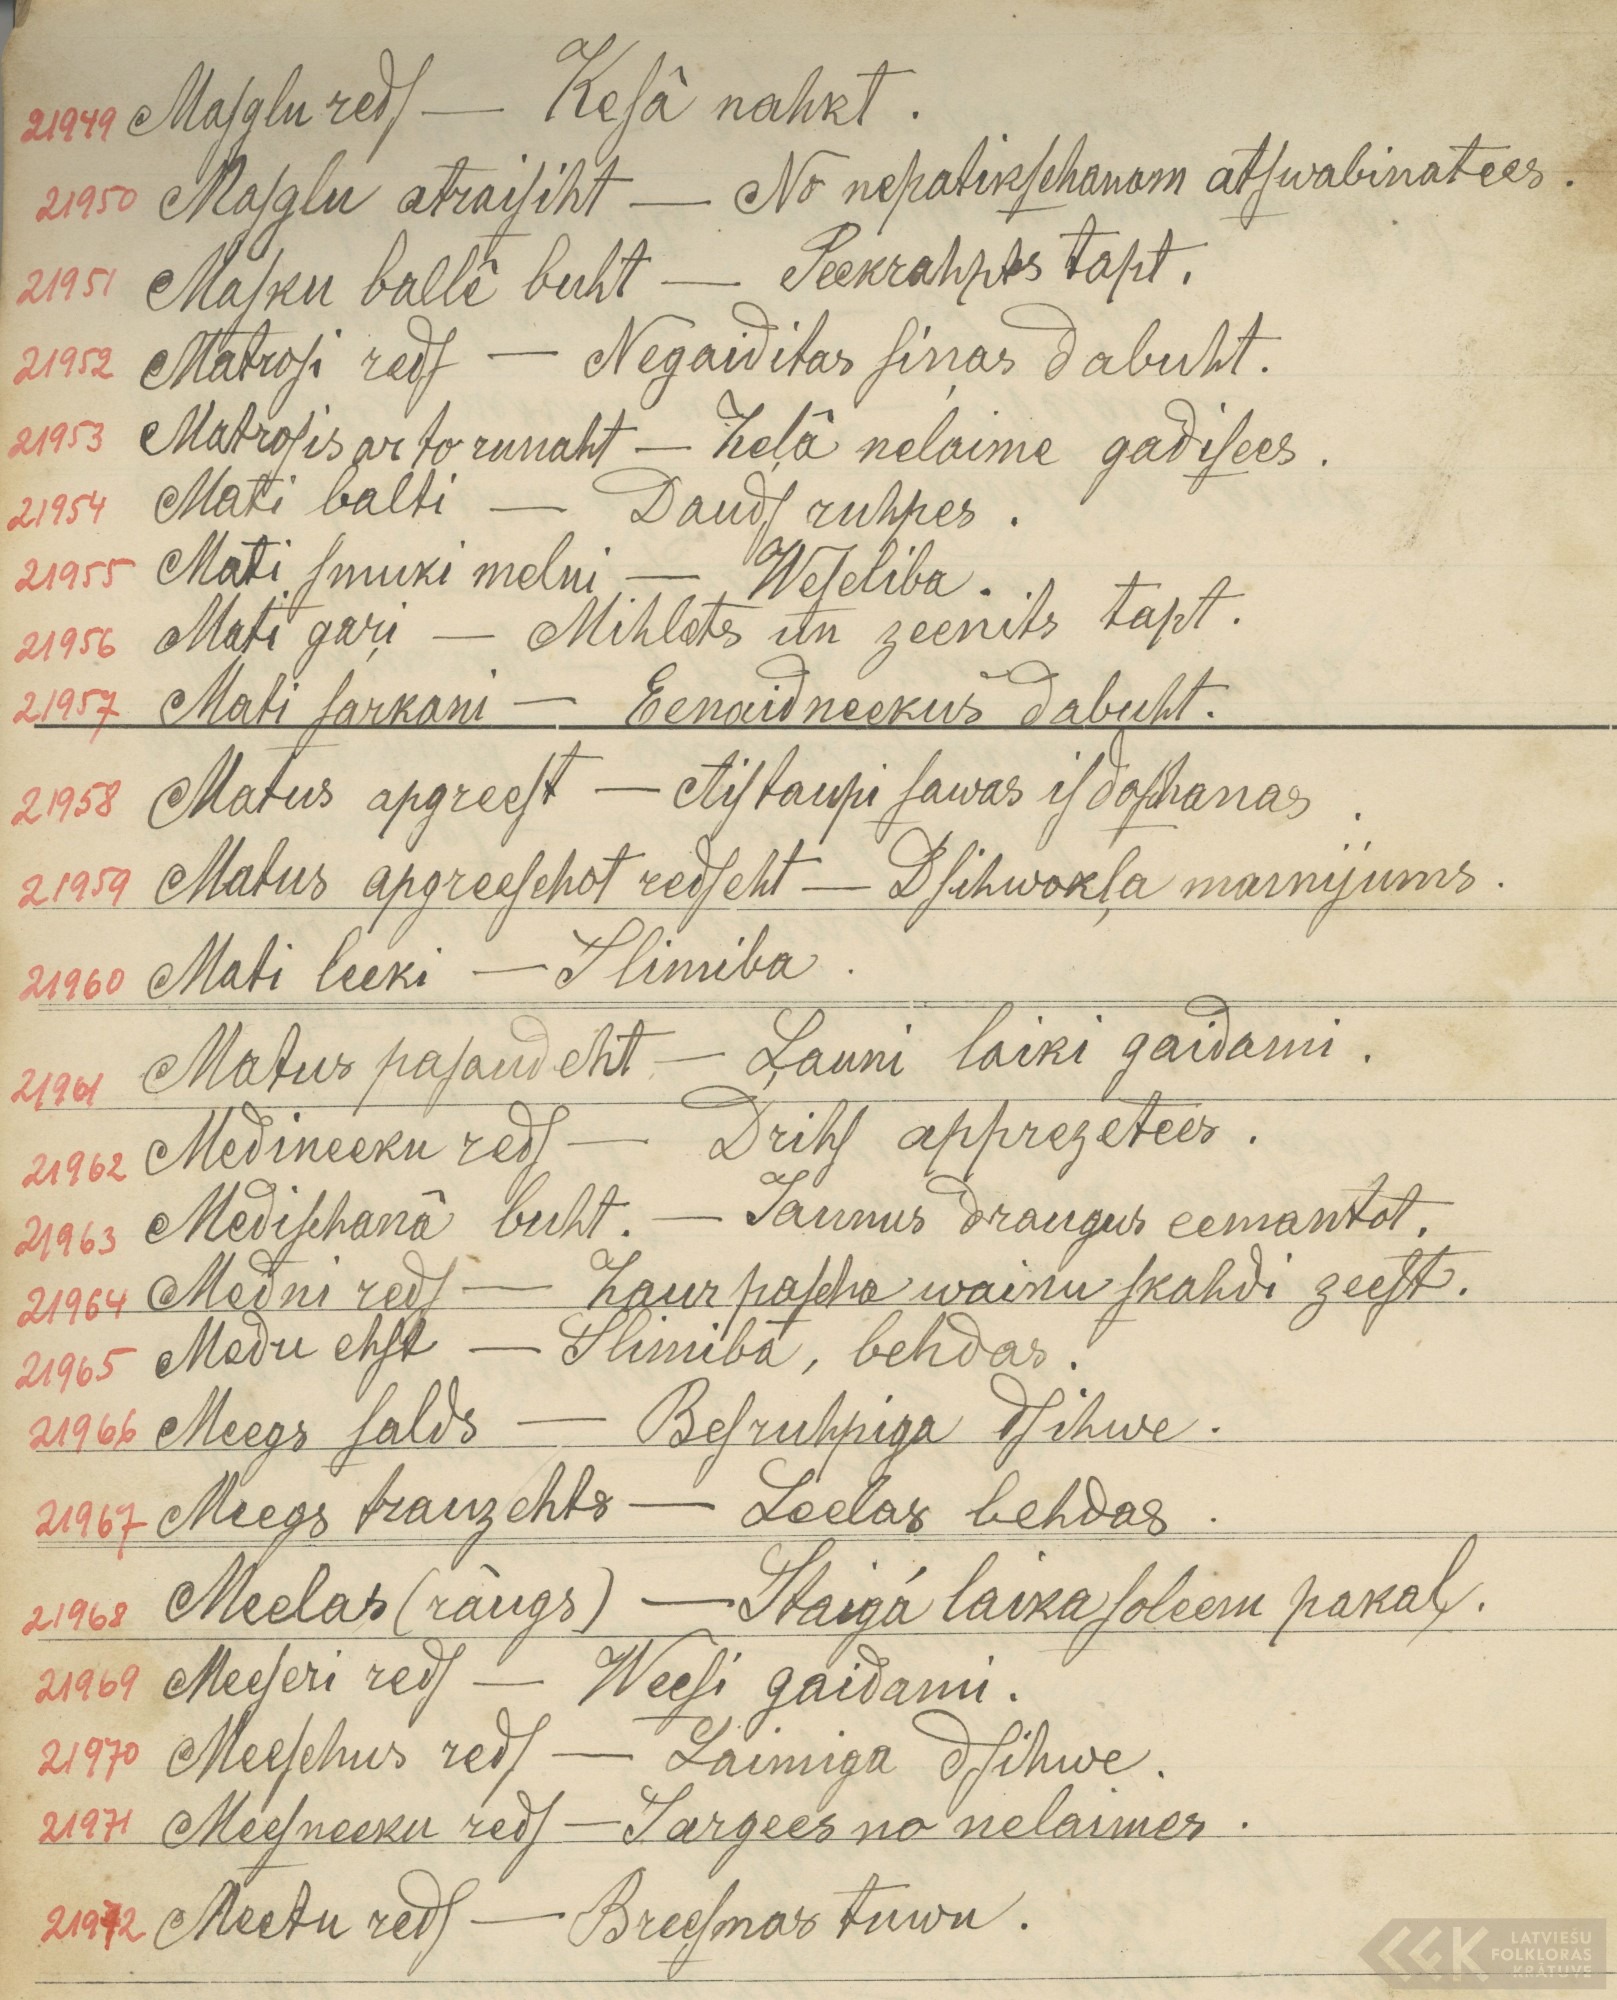 21949 Maſglu redſ — Keſâ nahkt.
21950 Maſglu atraiſiht — No nepatikſchanam atſwabinatees.
21951 Maſku ballê buht — Peekrahpts tapt.
21952 Matroſi redſ — Negaiditas ſiņas dabuht.
21953 Matroſis ar to runaht — Zeļâ nelaime gadiſees.
21954 Mati balti — Daudſ ruhpes.
21955 Mati ſmuki melni — Weſeliba.
21956 Mati gaŗi — Mihlots un zeenits tapt.
21957 Mati ſarkani — Eenaidneekus dabuht.
21958 Matus apgreeſt — Aiſtaupi ſawas iſdoſchanas.
21959 Matus apgreeſchot redſeht — Dſihwokļa mainijums.
21960 Mati leeki — Slimiba.
21961 Matus paſaudeht — Ļauni laiki gaidami.
21962 Medineeku redſ — Drihſ apprezetees.
21963 Mediſchanâ buht. — Jaunus draugus eemantot.
21964 Medni redſ — Zaur paſcha wainu ſkahdi zeeſt.
21965 Medu ehſt — Slimiba, behdas.
21966 Meegs ſalds — Beſruhpiga dſihwe.
21967 Meegs trauzehts — Leelas behdas.
21968 Meelas (rāugs) — Staigá laika ſoleem pakaļ.
21969 Meeſeri redſ — Weeſi gaidami.
21970 Meeſchus redſ — Laimiga dſihwe.
21971 Meeſneeku redſ — Sargees no nelaimes.
21972 Meetu redſ — Breeſmas tuwu.
LATVIEŠU
FOLKLORAS
KRĀTUVE